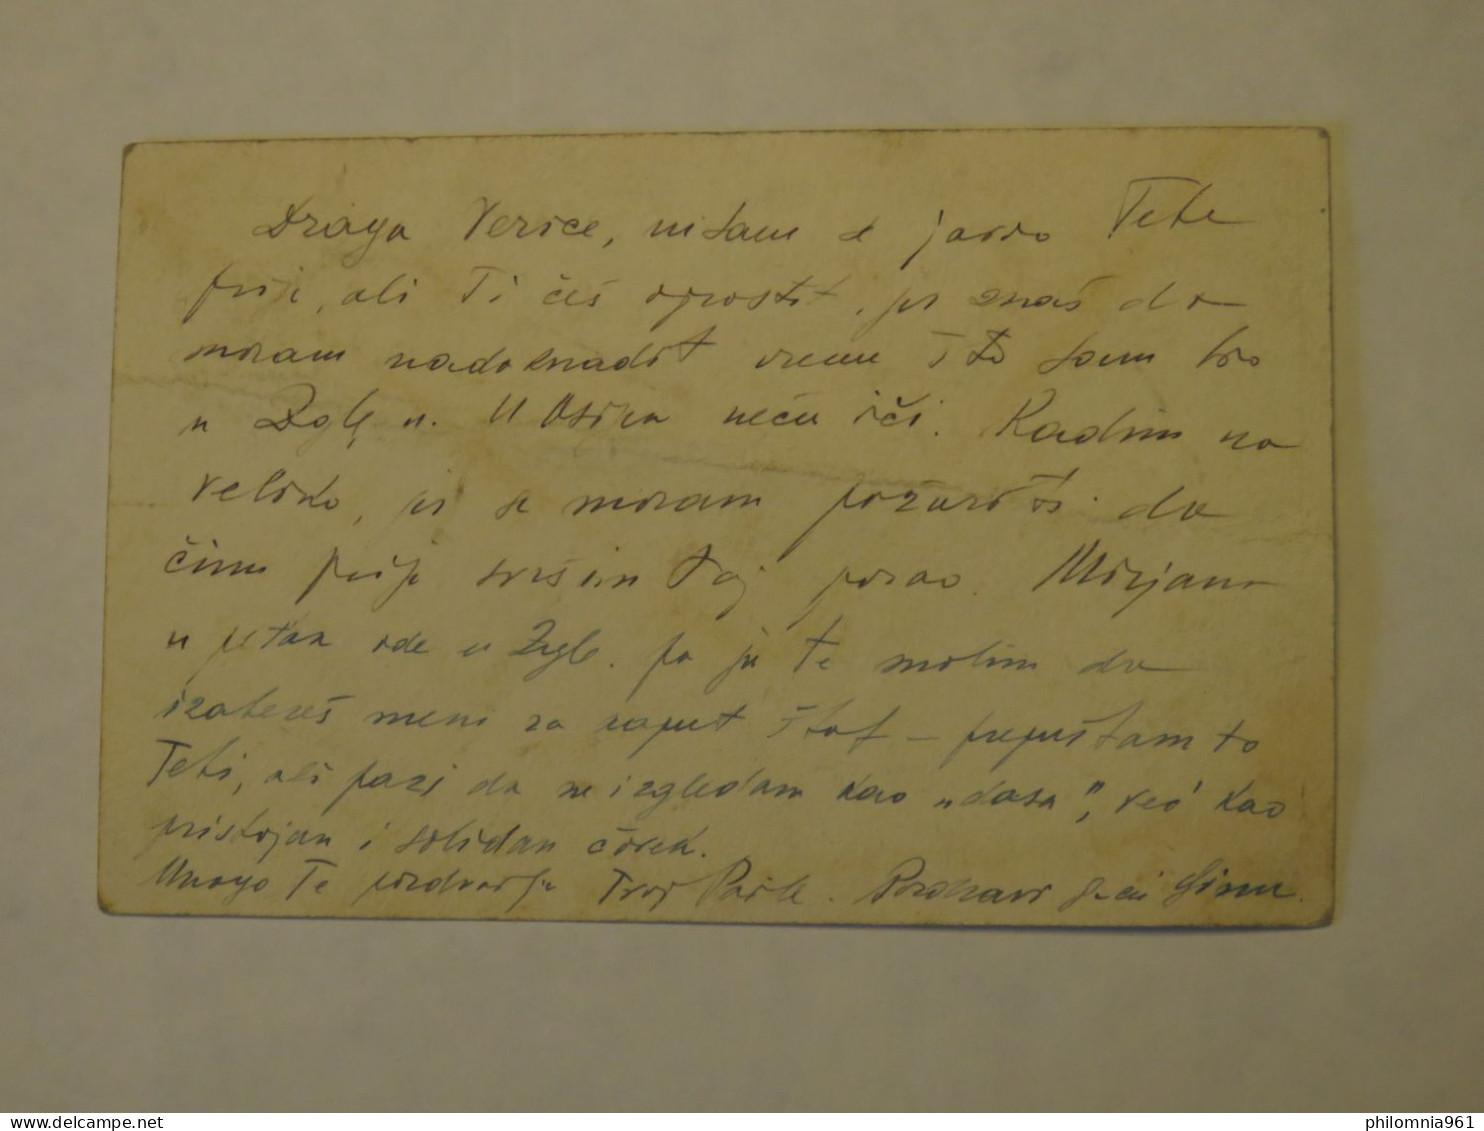 Draga Verice, nisam se javio Tebi
prije, ali Ti ćeš oprostit, jer znaš da
moram nadoknadit vreme što sam bio
u Zgbu. U neću ići. Radim na
veliko, jer se moram požuriti da
čim prije svršim taj posao. Mirjana
u petak ide u Zgb. pa ju te molim da
izabereš meni za kaput štof – prepuštam to
Tebi, ali pazi da ne izgledam kao „dasa", već kao
pristojan i solidan čovek.
Mnogo Te pozdravlja Tvoj Pozdravi
philomnia961